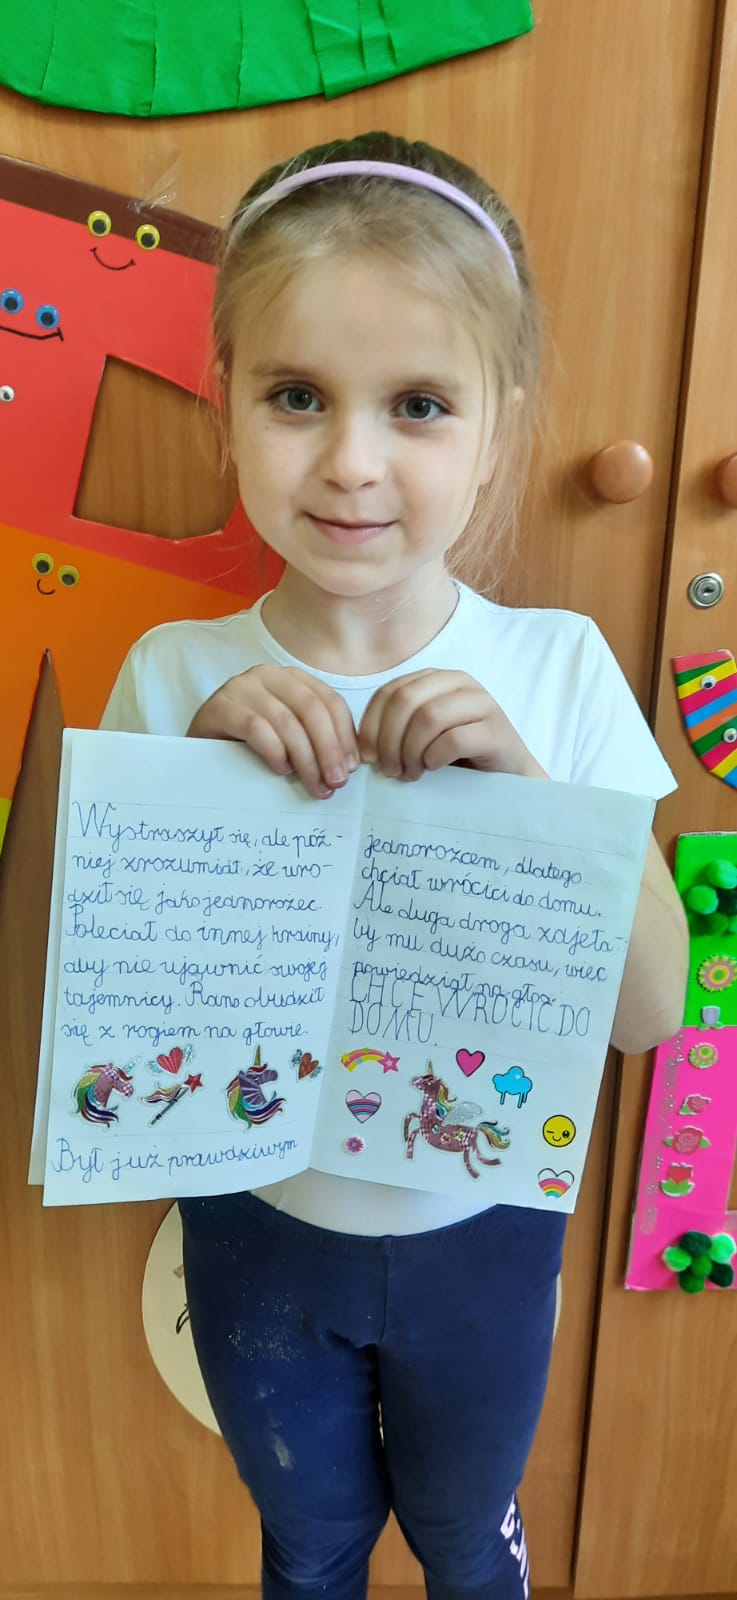 Wystraszył się, ale póź-
niej zrozumiał, że uro-
dził się jako jednorożec.
Poleciał do innej krainy,
aby nie ujawnić swojej
tajemnicy. Rano obudził
się z rogiem na głowie.
Był już prawdziwym
jednorożcem, dlatego
chciał wrócici do domu.
Ale duga droga zajęła-
by mu dużo czasu, więc
powiedział na głos:
CHCĘ WRÓCIĆ DO
DOMU.